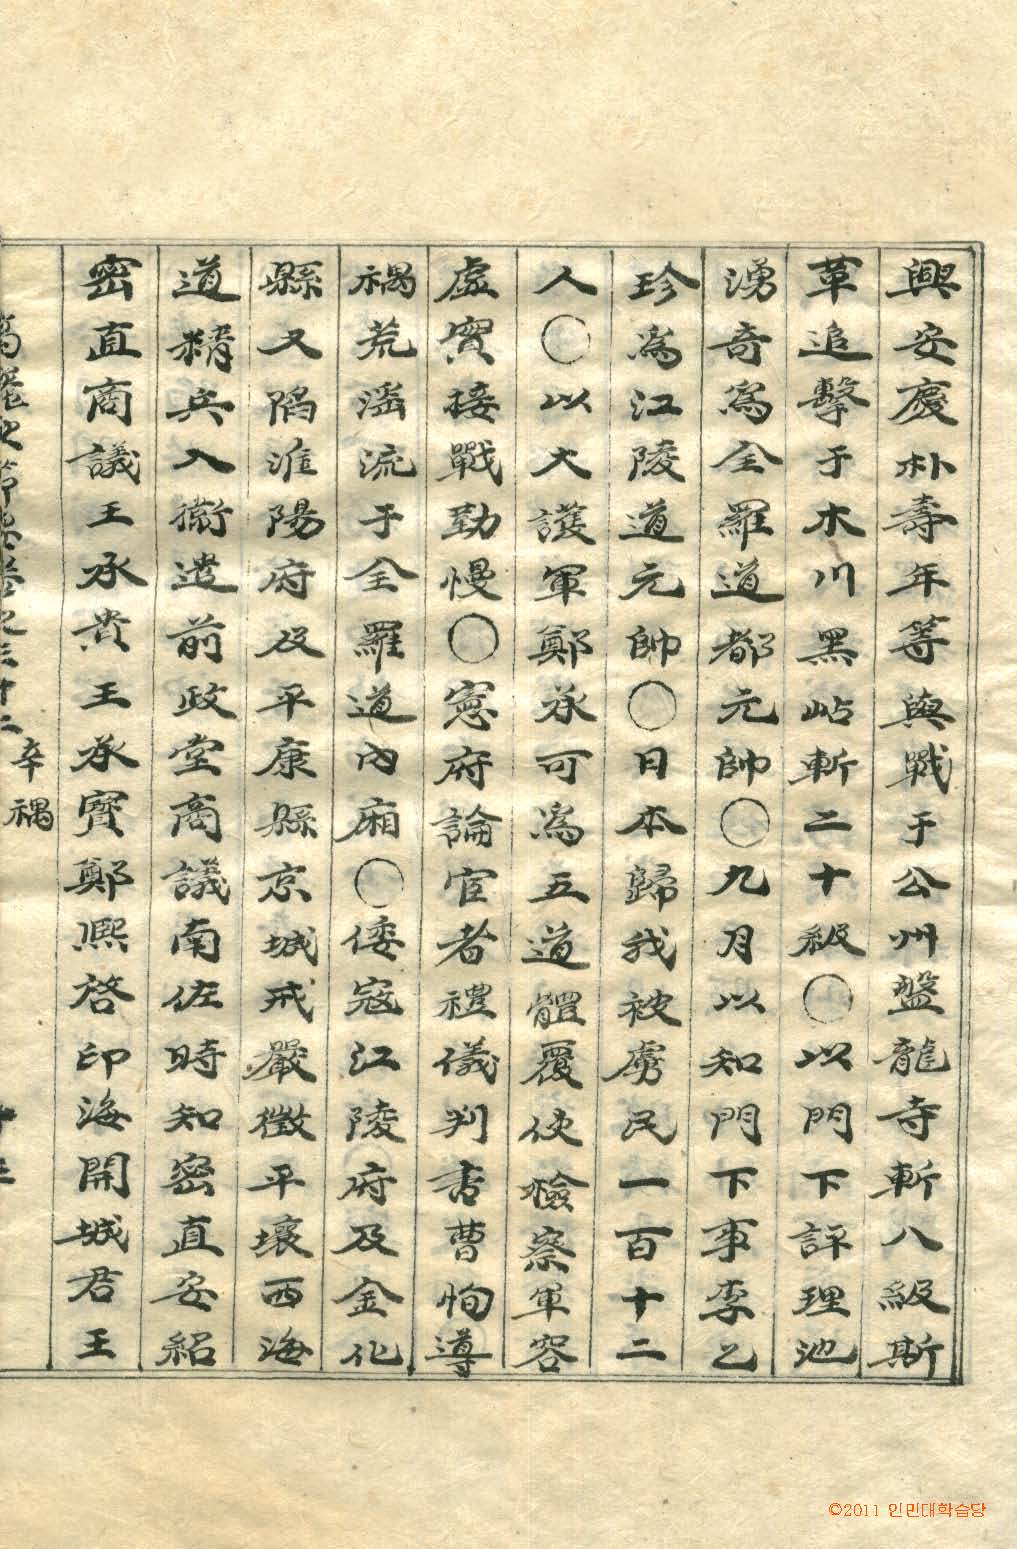 興安慶朴壽年等與戰于公州盤龍寺斬八級斯
革追擊于木川黑岾斬二十級○以門下評理池
湧奇爲全羅道都元帥○九月以知門下事李乙
珍爲江陵道元帥○日本歸我被虜民一百十二
人○以大護軍鄭承可爲五道體覆使檢察軍容
虛實接戰勤慢○憲府論宦者禮儀判書曹恂導
禑荒滛流于全羅道內廂○倭寇江陵府及金化
縣又陷淮陽府及平康縣京城戒嚴徵平壤西海
道精兵入衞遣前政堂商議南佐時知密直安紹
密直商議王承貴王承寶鄭熈啓印海開城君王
高麗史節要卷之三十二 辛禑 十三
©2011 인민대학습당